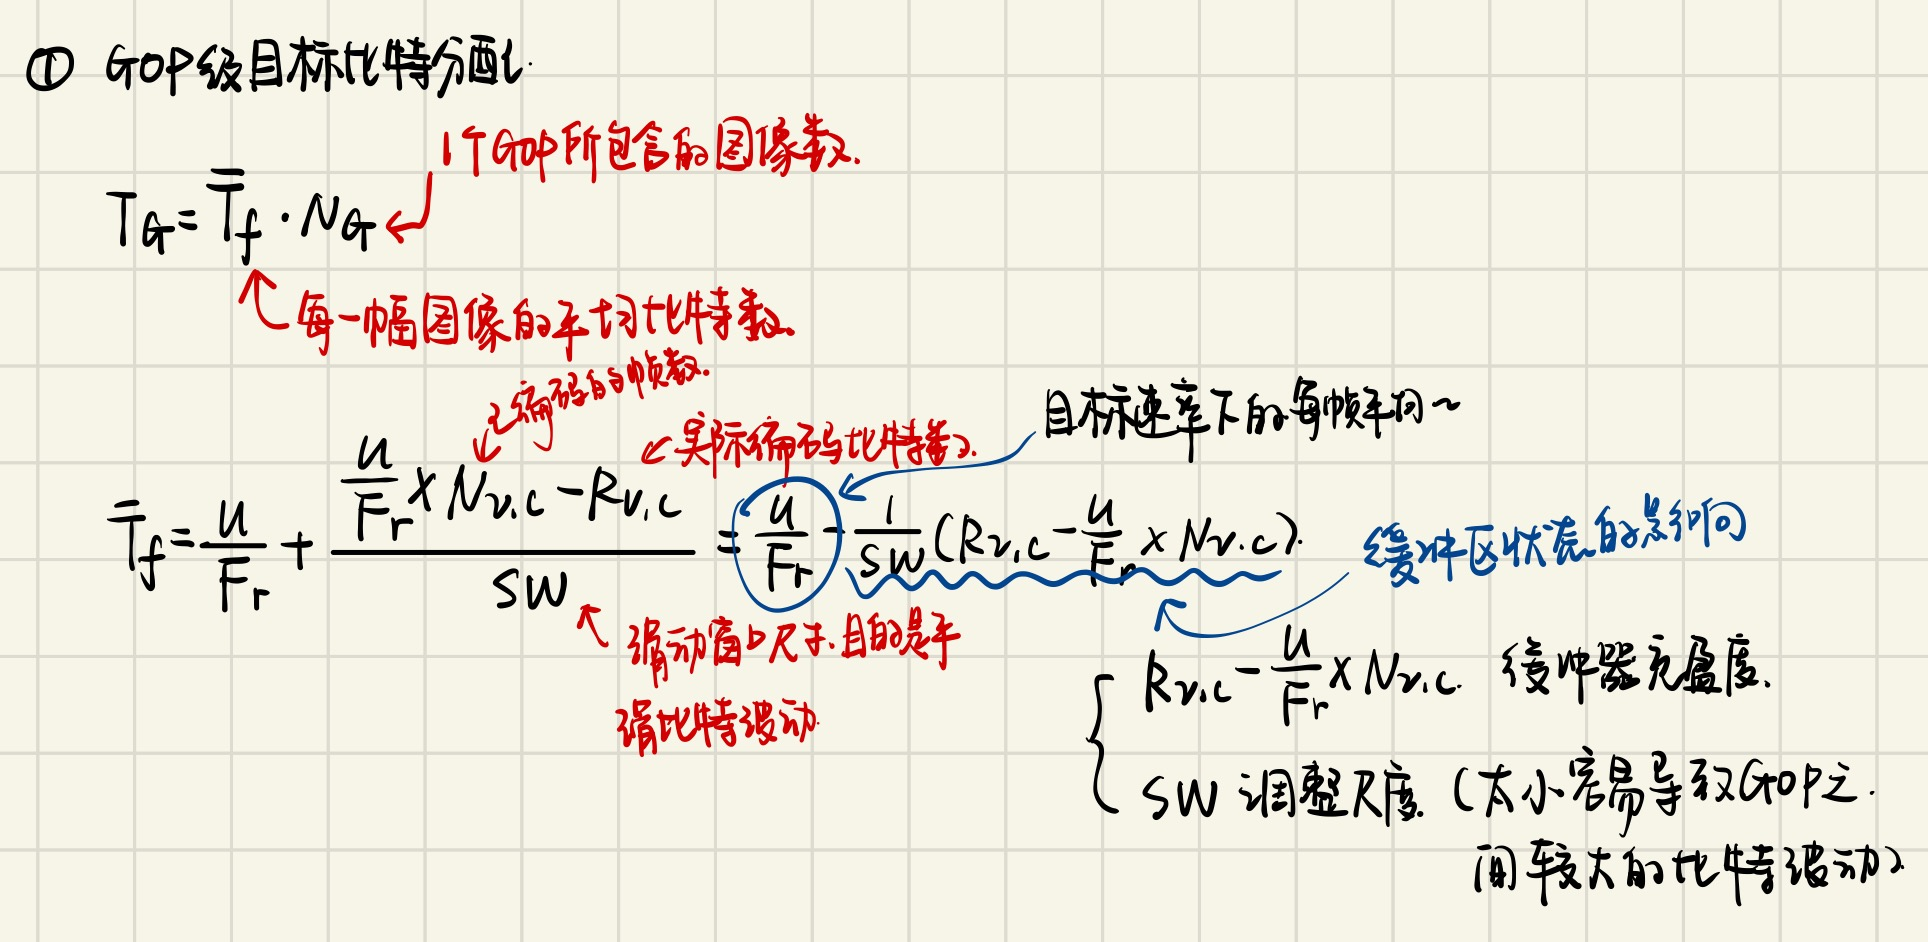 ① GOP级目标比特分配.
1个GOP所包含的图像数.
T_G = T̄_f · N_G
每一幅图像的平均比特数.
已编码的帧数.
实际编码比特数.
目标速率下的每帧平均~
T̄_f = u/F_r + (u/F_r × N_{v,c} - R_{v,c})/SW = u/F_r - 1/SW (R_{v,c} - u/F_r × N_{v,c}).
缓冲区状态的影响
滑动窗口尺寸.目的是平
滑比特波动.
R_{v,c} - u/F_r × N_{v,c}. 缓冲器充盈度.
SW 调整尺度. (太小容易导致GOP之.
间较大的比特波动)